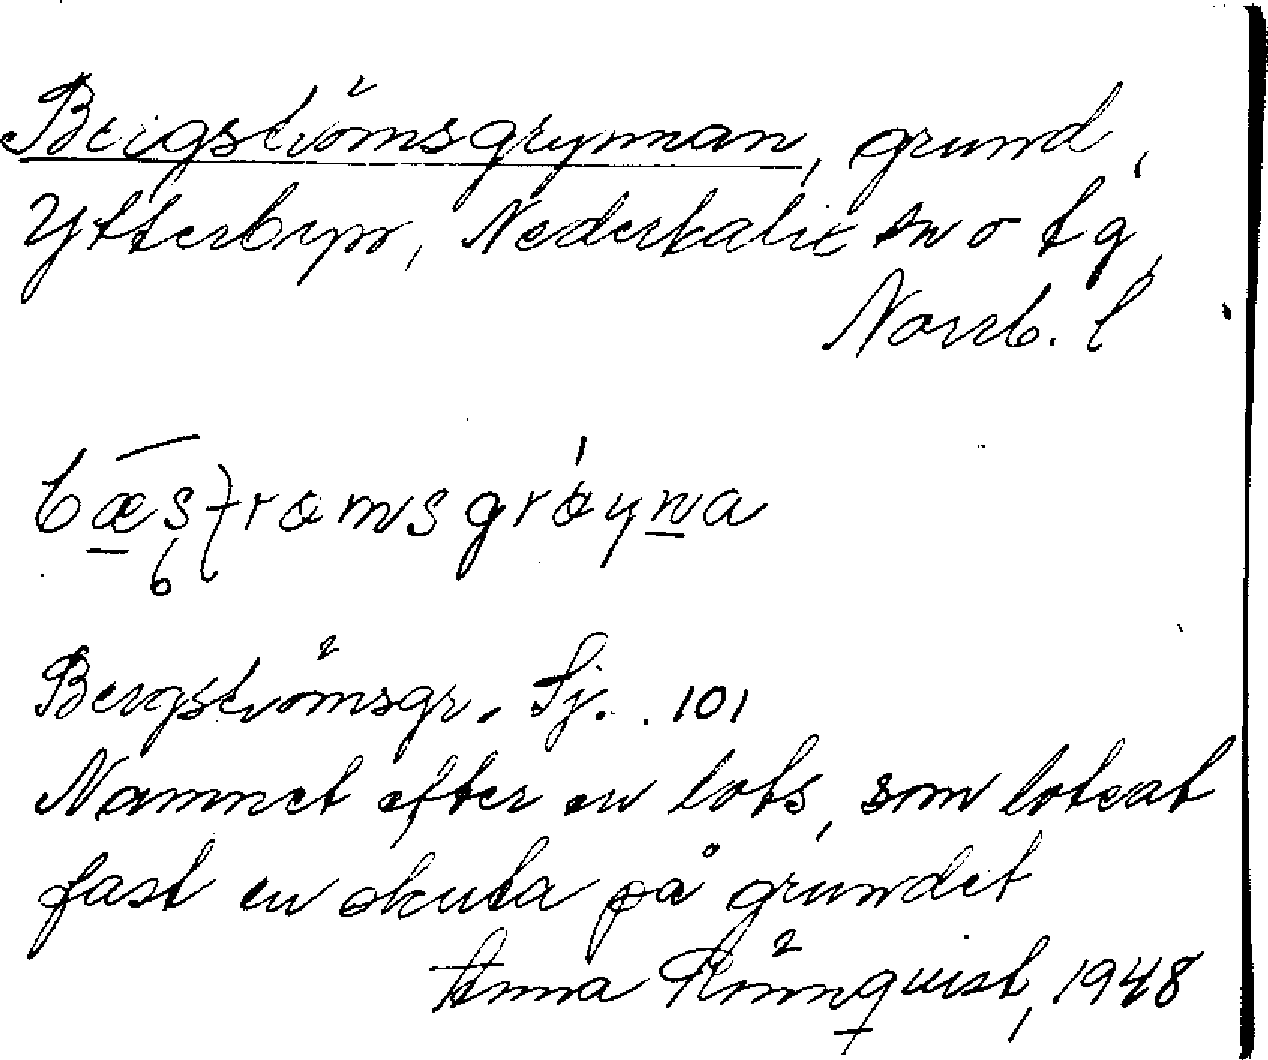 Bergströmsgrynnan, grund,
Ytterbyn, Nederkalix sn o tg,
Norrb. l
Bergströmsgr. Sj. 101
Namnet efter en lots, som lotsat
fast en skuta på grundet
Anna Rönnqvist, 1948